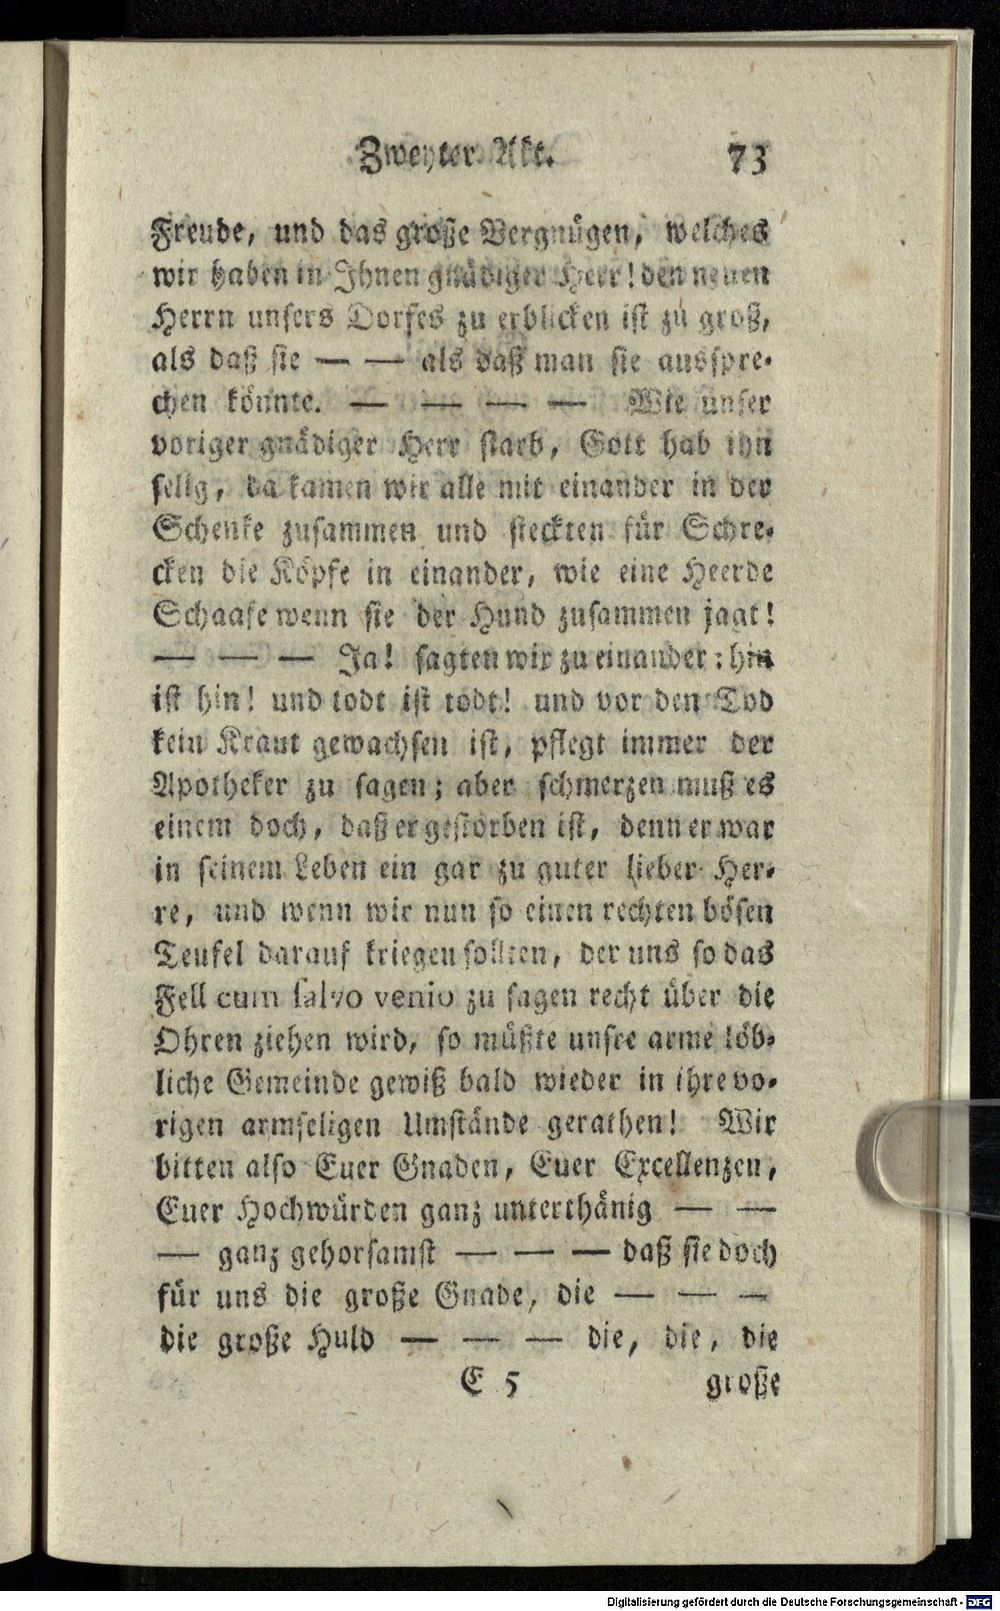 Zweyter Akt. 73
Freude, und das große Vergnügen, welches
wir haben in Ihnen gnädiger Herr! den neuen
Herrn unsers Dorfes zu erblicken ist zu groß,
als daß sie — — als daß man sie ausspre-
chen könnte. — — — — Wie unser
voriger gnädiger Herr starb, Gott hab ihn
selig, da kamen wir alle mit einander in der
Schenke zusammen und steckten für Schre-
cken die Köpfe in einander, wie eine Heerde
Schaafe wenn sie der Hund zusammen jagt!
— — — Ja! sagten wir zu einander: hin
ist hin! und todt ist todt! und vor den Tod
kein Kraut gewachsen ist, pflegt immer der
Apotheker zu sagen; aber schmerzen muß es
einem doch, daß er gestorben ist, denn er war
in seinem Leben ein gar zu guter lieber Her-
re, und wenn wir nun so einen rechten bösen
Teufel darauf kriegen sollten, der uns so das
Fell cum salvo venio zu sagen recht über die
Ohren ziehen wird, so müßte unsre arme löb-
liche Gemeinde gewiß bald wieder in ihre vo-
rigen armseligen Umstände gerathen! Wir
bitten also Euer Gnaden, Euer Excellenzen,
Euer Hochwürden ganz unterthänig — —
— ganz gehorsamst — — — daß sie doch
für uns die große Gnade, die — — —
die große Huld — — — die, die, die
E 5 große
Digitalisierung gefördert durch die Deutsche Forschungsgemeinschaft - DFG